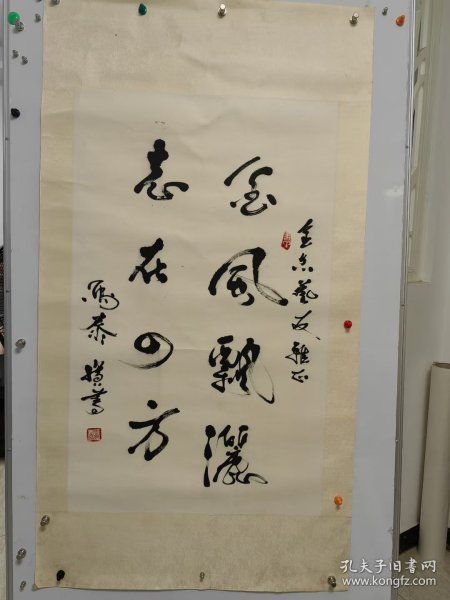 金京艺友雅正
金风飘洒
志在四方
冯泰横书
孔夫子旧书网
www.kongfz.com